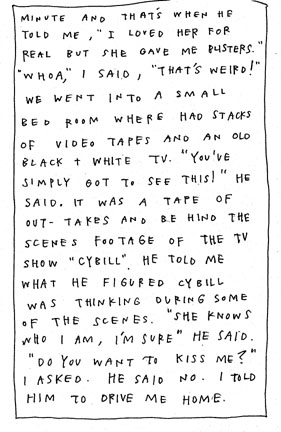 MINUTE AND THAT'S WHEN HE
TOLD ME, "I LOVED HER FOR
REAL BUT SHE GAVE ME BLISTERS."
"WHOA," I SAID, "THAT'S WEIRD!"
WE WENT INTO A SMALL
BED ROOM WHERE HAD STACKS
OF VIDEO TAPES AND AN OLD
BLACK + WHITE TV. "YOU'VE
SIMPLY GOT TO SEE THIS!" HE
SAID. IT WAS A TAPE OF
OUT-TAKES AND BE HIND THE
SCENES FOOTAGE OF THE TV
SHOW "CYBILL". HE TOLD ME
WHAT HE FIGURED CYBILL
WAS THINKING DURING SOME
OF THE SCENES. "SHE KNOWS
WHO I AM, I'M SURE" HE SAID.
"DO YOU WANT TO KISS ME?"
I ASKED. HE SAID NO. I TOLD
HIM TO DRIVE ME HOME.